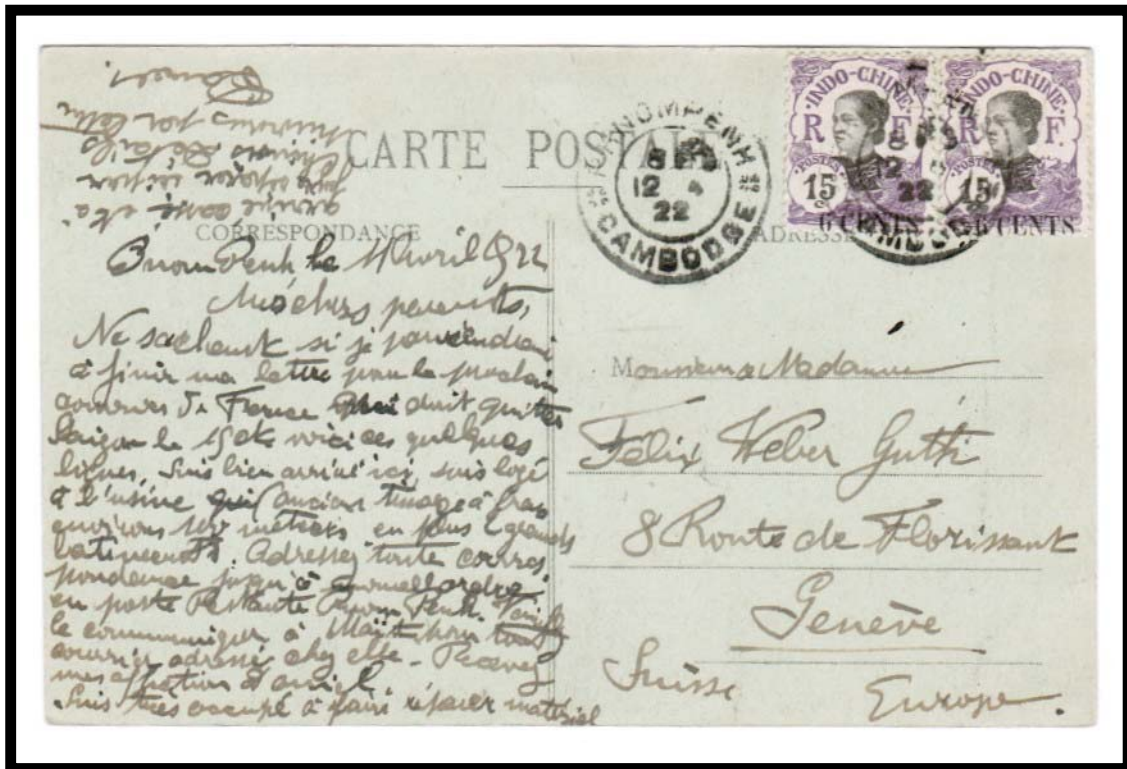 CARTE POSTALE
CORRESPONDANCE
ADRESSE
PHNOMPENH
8 12 4
22
CAMBODGE
INDO-CHINE
R F
POSTES
15
6 CENTS
INDO-CHINE
R F
POSTES
15
6 CENTS
Pnom Penh le 11 Avril 1922
Mes chers parents,
Ne sachant si je parviendrai
à finir ma lettre pour le prochain
courrier de France qui doit quitter
Saigon le 15 ct voici ces quelques
lignes, Suis bien arrivé ici, suis logé
à l'usine qui
environs métiers en plus grands
batiments. Adressez toute corres-
pondance jusqu'à nouvel ordre
en poste Restante Pnom Penh.
le communiquer à pour tout
courrier adressé chez elle - Recevez
mes
Suis très occupé à faire réparer matériel
arrivé cassé et à
faire
Chinois Détails
suivront par lettre
Monsieur & Madame
Félix Weber Gutti
8 Route de Florissant
Genève
Suisse
Europe.